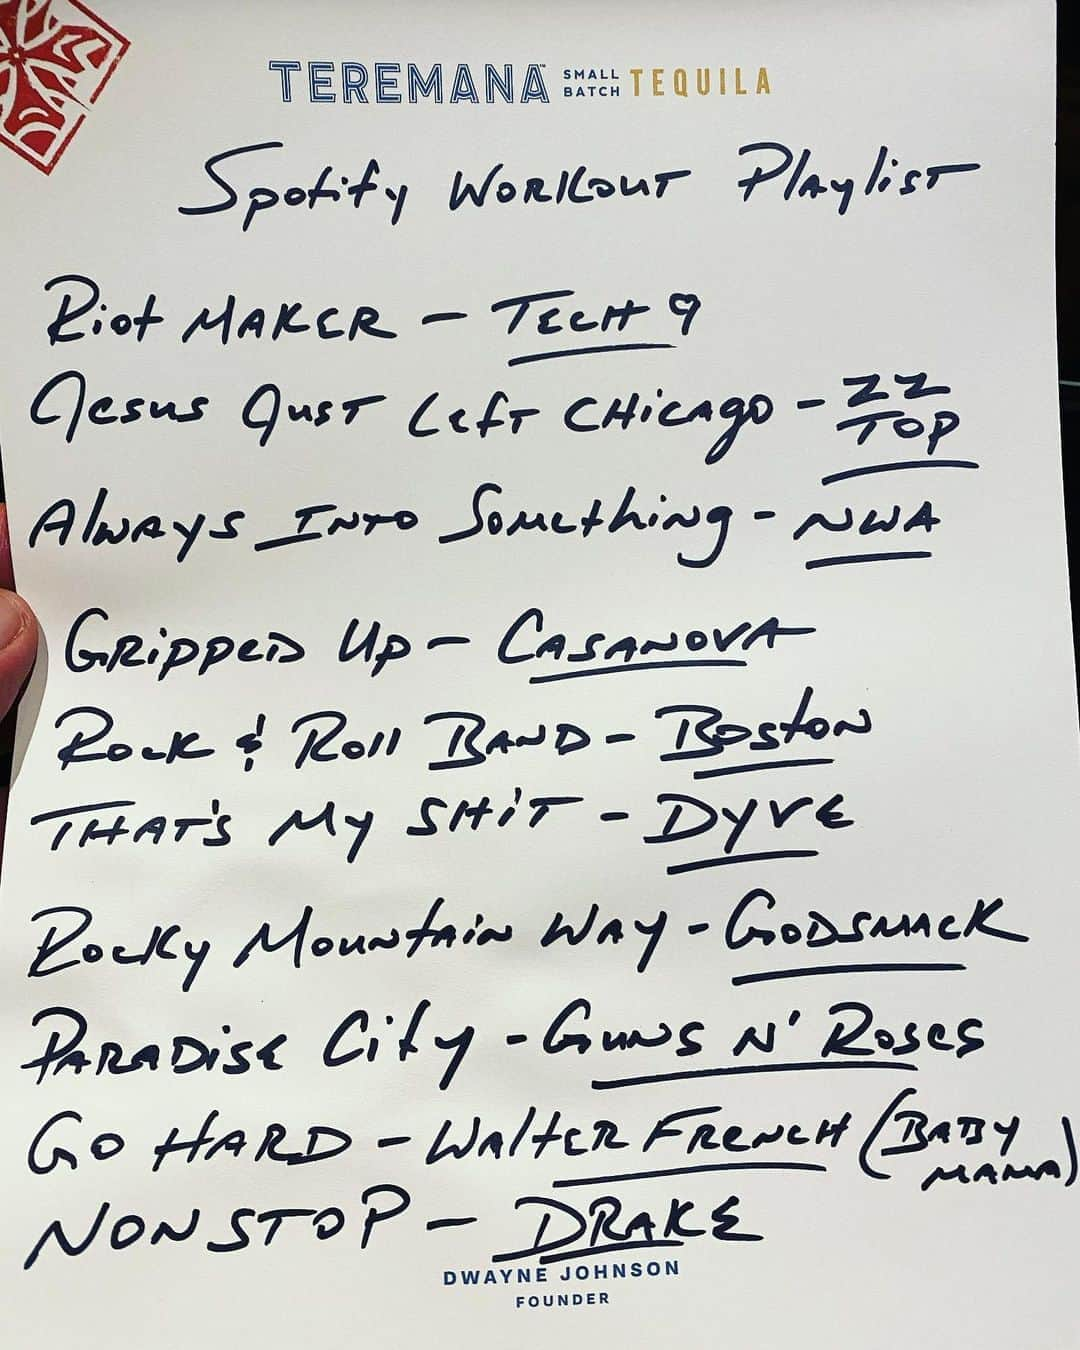 TEREMANA™ SMALL BATCH TEQUILA
Spotify Workout Playlist
Riot Maker – Tech 9
Jesus Just Left Chicago – ZZ Top
Always Into Something – NWA
Gripped Up – Casanova
Rock & Roll Band – Boston
That's My Shit – Dyve
Rocky Mountain Way – Godsmack
Paradise City – Guns N' Roses
Go Hard – Walter French (Baby Mama)
Nonstop – Drake
DWAYNE JOHNSON
FOUNDER